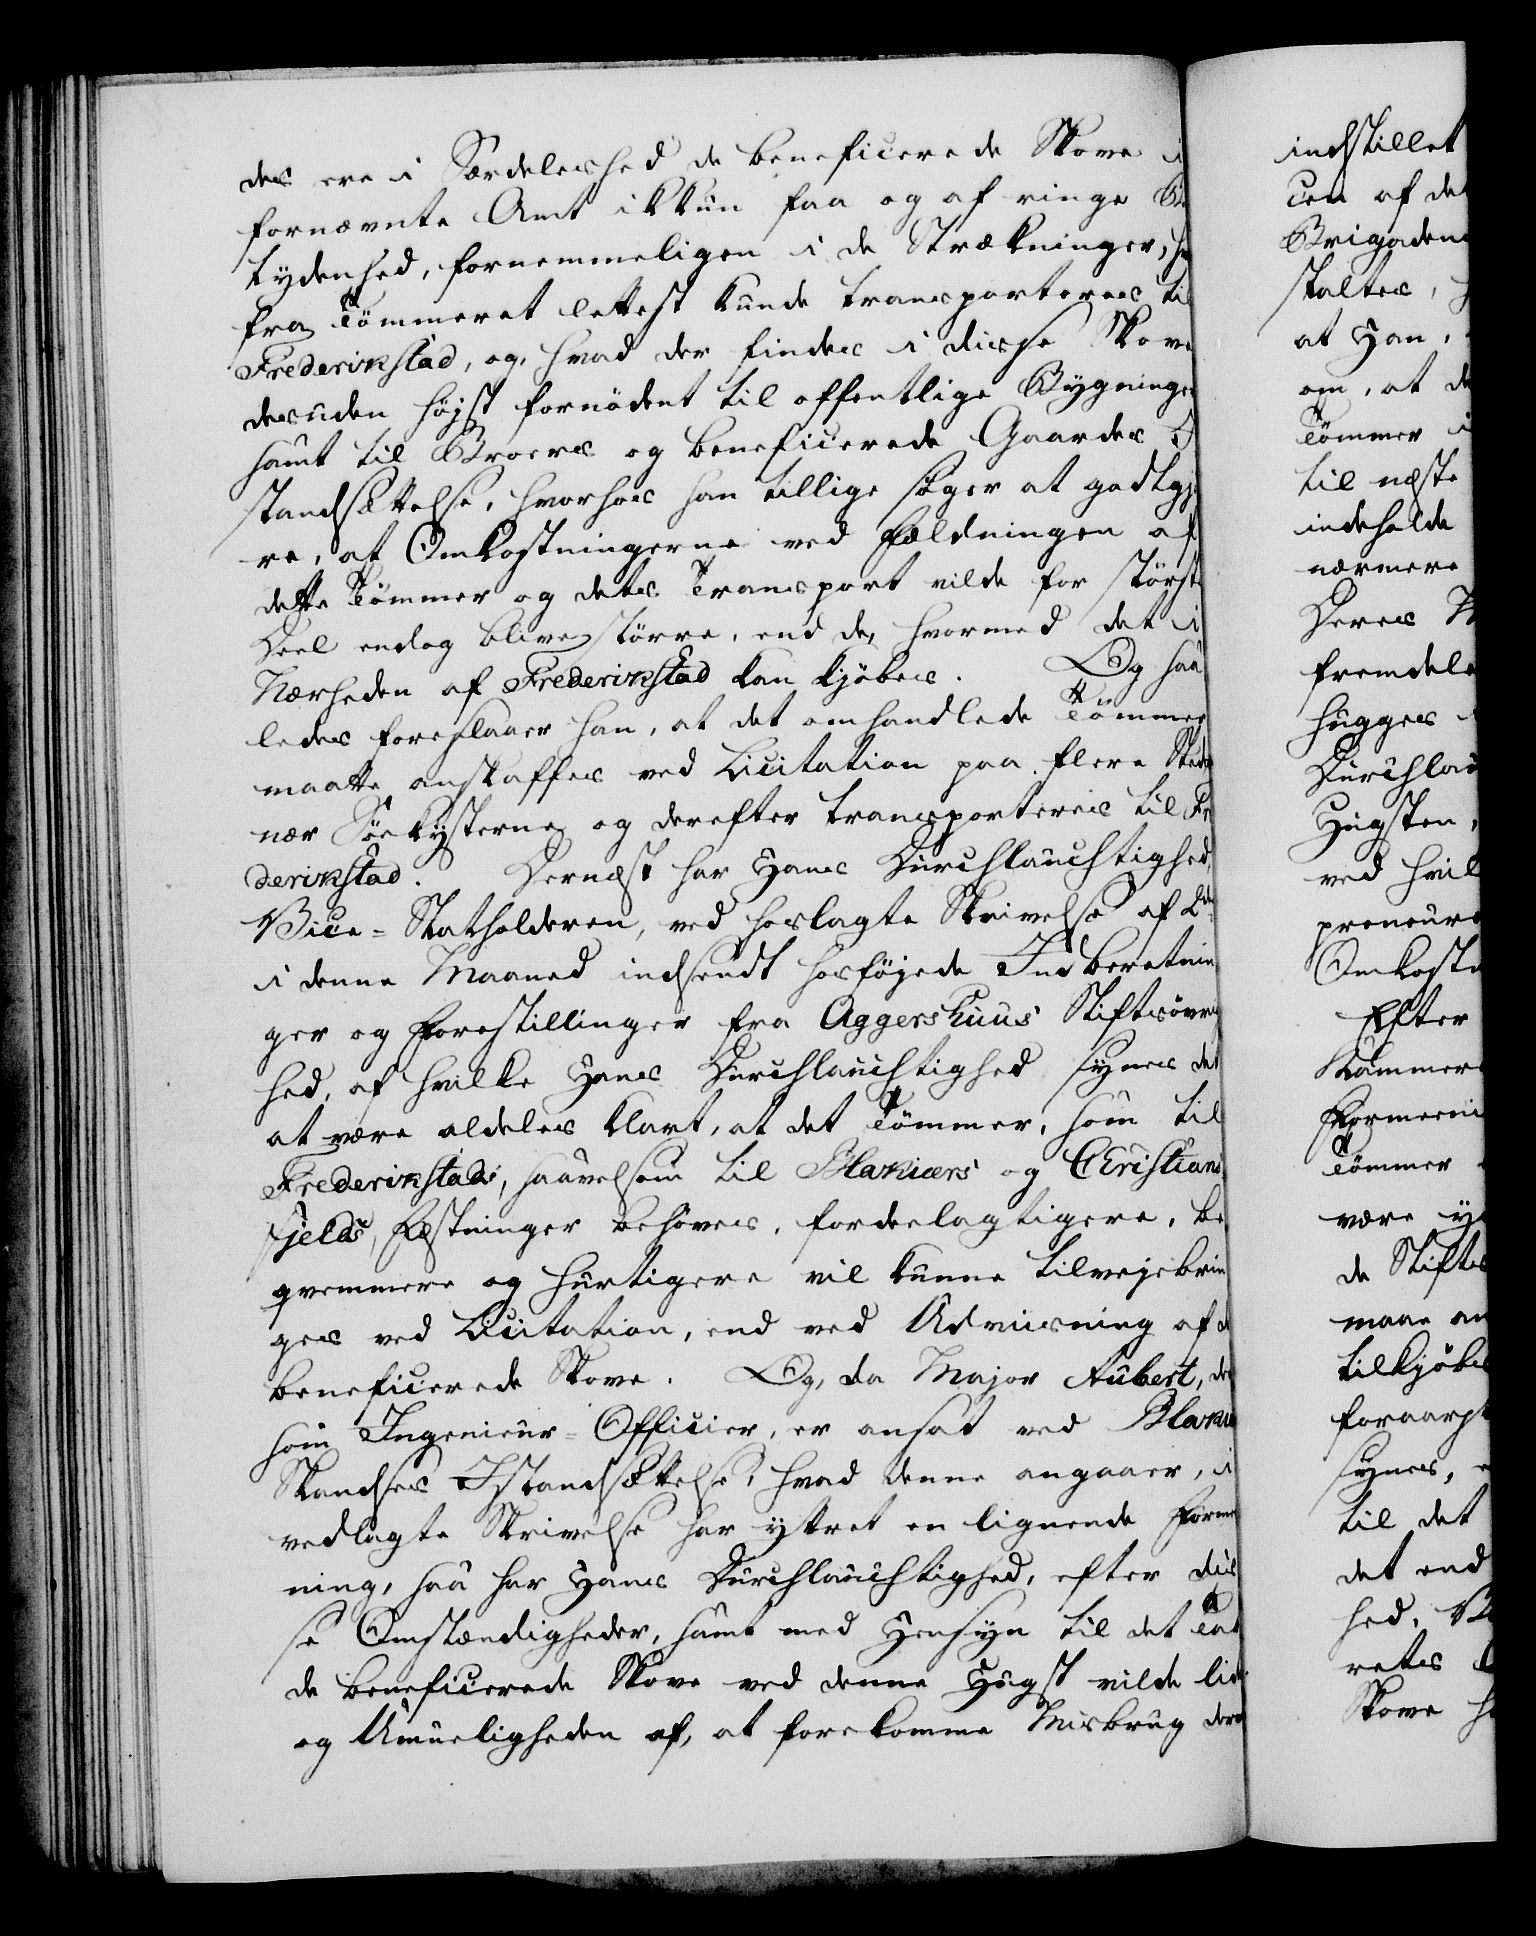 des ere i Særdeleshed de beneficerede Skove i
fornævnte Amt ikkun faa og af ringe Be
tydenhed, fornemmeligen i de Strækninger, hvor
fra Tömmeret lettest kunde transporteres til
Frederikstad, og, hvad der findes i disse Skove
desuden höjst fornödent til offentlige Bygninger
samt til Broers og beneficerede Gaardes I
standsættelse, hvorhos han tillige söger at godtgjö
re, at Omkostningerne ved Fældningen af
dette Tömmer og dets Transport vilde for störste
Deel endog blive större, end de, hvormed det i
Nærheden af Frederikstad kan kjöbes. Og saa
ledes foreslaaer han, at det omhandlede Tömmer
maatte anskaffes ved Licitation paa flere Steder
nær Söekysterne og derefter transporteres til Fre
derikstad. Dernæst har Hans Durchlauchtighed,
Vice-Statholderen, ved hoslagte Skrivelse af 2den
i denne Maaned indsendt hosföjede Indberetnin
ger og Forestillinger fra Aggershuus Stiftsövrig
hed, af hvilke Hans Durchlauchtighed synes det
at være aldeles klart, at det Tömmer, som til
Frederikstads, saavelsom til Blakiærs og Christians
fjelds, Fæstninger behöves, fordeelagtigere, be
qvemmere og hurtigere vil kunne tilvejebrin
ges ved Licitation, end ved Udviisning af de
beneficerede Skove. Og, da Major Aubert, der
som Ingenieur-Officier, er ansat ved Blakiærs
Skandses Istandsættelse, hvad denne angaaer, i
vedlagte Skrivelse har yttret en lignende Formee
ning, saa har Hans Durchlauchtighed, efter dis
se Omstændigheder, samt med Hensyn til det Tab
de beneficerede Skove ved denne Hugst vilde lide
og Umueligheden af, at forekomme Misbrug derved
indstillet
ten af de
Brigaden
staltes,
at Han,
om, at de
Tömmer i
til næste
indeholde
nærmere
Deres
fremdele
hugges
Durchlau
Hugsten,
ved hvil
preneure
Omkostn
Efter
Kammere
Formeeni
Tömmer
være
de Stifts
maae an
tilkjöbes
foraars
synes,
til det
det end
hed,
rets
Skove